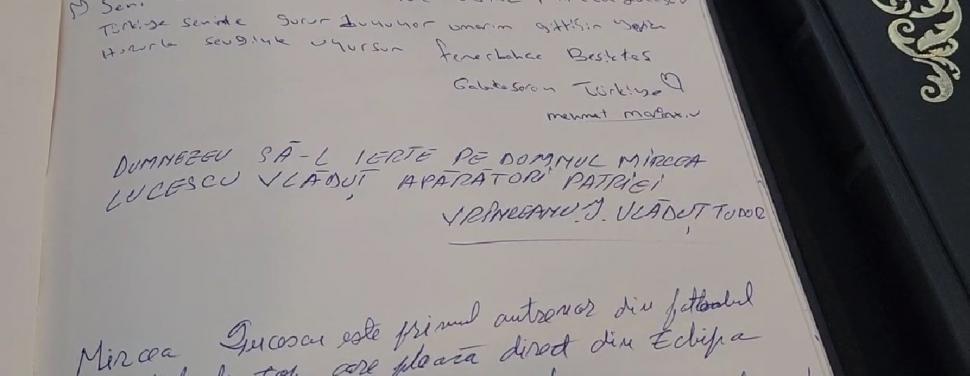 Seni
Türkiye seninle gurur duyuyor umarım gittiğin yerde
Huzurla sevgiyle uyursun Fenerbahce Besiktas
Galatasaray Türkiye
mehmet
DUMNEZEU SĂ-L IERTE PE DOMNUL MIRCEA
LUCESCU VLĂDUȚ APĂRĂTORI PATRIEI
VRÎNCEANU. J. VLĂDUȚ TUDOR
Mircea Lucescu este primul antrenor din fotbalul
care pleacă direct din Echipa